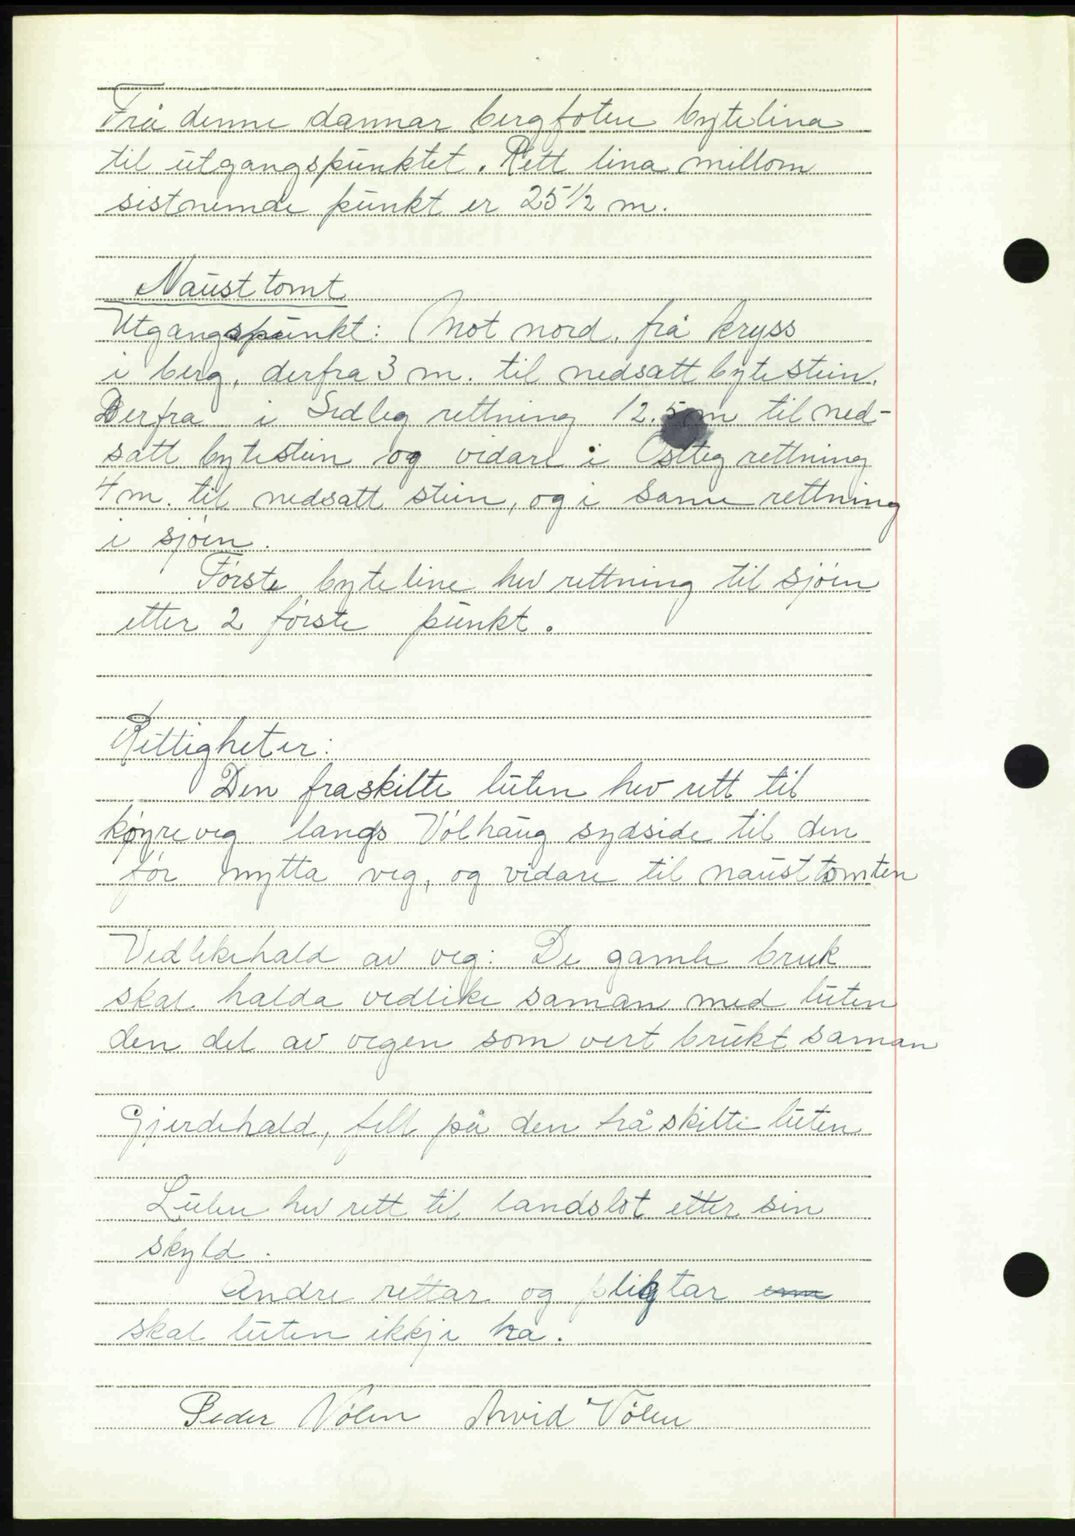 Frå denne dannar bergfoten bytelina
til utgangspunktet. Rett lina millom
sistnemde punkt er 25 1/2 m.
Nausttomt
Utgangspunkt: Mot nord, frå kryss
i berg, derfra 3 m. til nedsatt bytestein.
Derfra i Sydleg rettning 12.5 m til ned-
satt bytestein og vidare i Østleg rettning
4 m. til nedsatt stein, og i same rettning
i sjøen.
Første byteline hev rettning til sjøen
etter 2 første punkt.
Rettigheter:
Den fraskilte luten hev rett til
køyreveg langs Vølhaug sydside til den
før nytta veg, og vidare til nausttomten
Vedlikehald av veg: De gamle bruk
skal halda vedlike saman med luten
den del av vegen som vert brukt saman
Gjerdehald, fell på den fråskilte luten
Luten hev rett til landslot etter sin
skyld.
Andre rettar og pligtar
skal luten ikkje ha.
Peder Vølen Arvid Vølen